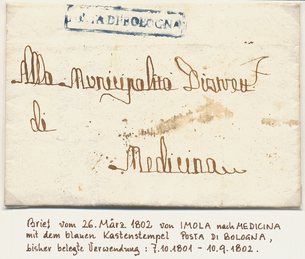 POSTA DI BOLOGNA
Alla Municipalità Distrett
di
Medicina
Brief vom 26. März 1802 von IMOLA nach MEDICINA
mit dem blauen Kastenstempel POSTA DI BOLOGNA,
bisher belegte Verwendung: 7.10.1801 - 10.9.1802.